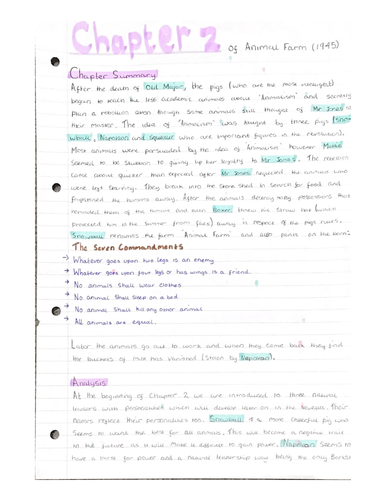 Chapter 2 of Animal Farm (1945)
Chapter Summary
After the death of Old Major, the pigs (who are the most intelligent)
begin to teach the less academic animals about 'Animalism' and secretly
plan a rebellion even though some animals still thought of Mr Jones as
their master. The idea of 'Animalism' was taught by three pigs (Snow-
ball, Napoleon and Squealer who are important figures in the revolution).
Most animals were persuaded by the idea of Animalism however Mollie
seemed to be to giving up her loyalty to Mr Jones. The rebellion
came about quicker than expected after Mr Jones neglected the animals who
were left starving. They break into the store shed in search for food and
frightened the humans away. After the animals destroy many possessions that
reminded them of the humans and even Boxer threw his straw hat (which
protected him in the summer from flies) away in respect of the pigs rules.
Snowball renames the farm 'Animal Farm' and also paints on the farm:
The Seven Commandments
→ Whatever goes upon two legs is an enemy
→ Whatever goes upon four legs or has wings is a friend.
→ No animals shall wear clothes.
→ No animal shall sleep on a bed
→ No animal shall kill any other animal
→ All animals are equal.
Later the animals go out to work and when they come back they find
the buckets of milk has vanished (stolen by Napoleon).
Analysis
At the beginning of Chapter 2 we are introduced to three natural
leaders with personalities which will develop later on in the novella. Their
names reflect their personalities too. Snowball is a more cheerful pig who
seems to want the best for all animals. This will become a negative trait
in the future as it will make it difficult to gain power. Napoleon seems to
have a thirst for power and a natural leadership way being the only Berkshire